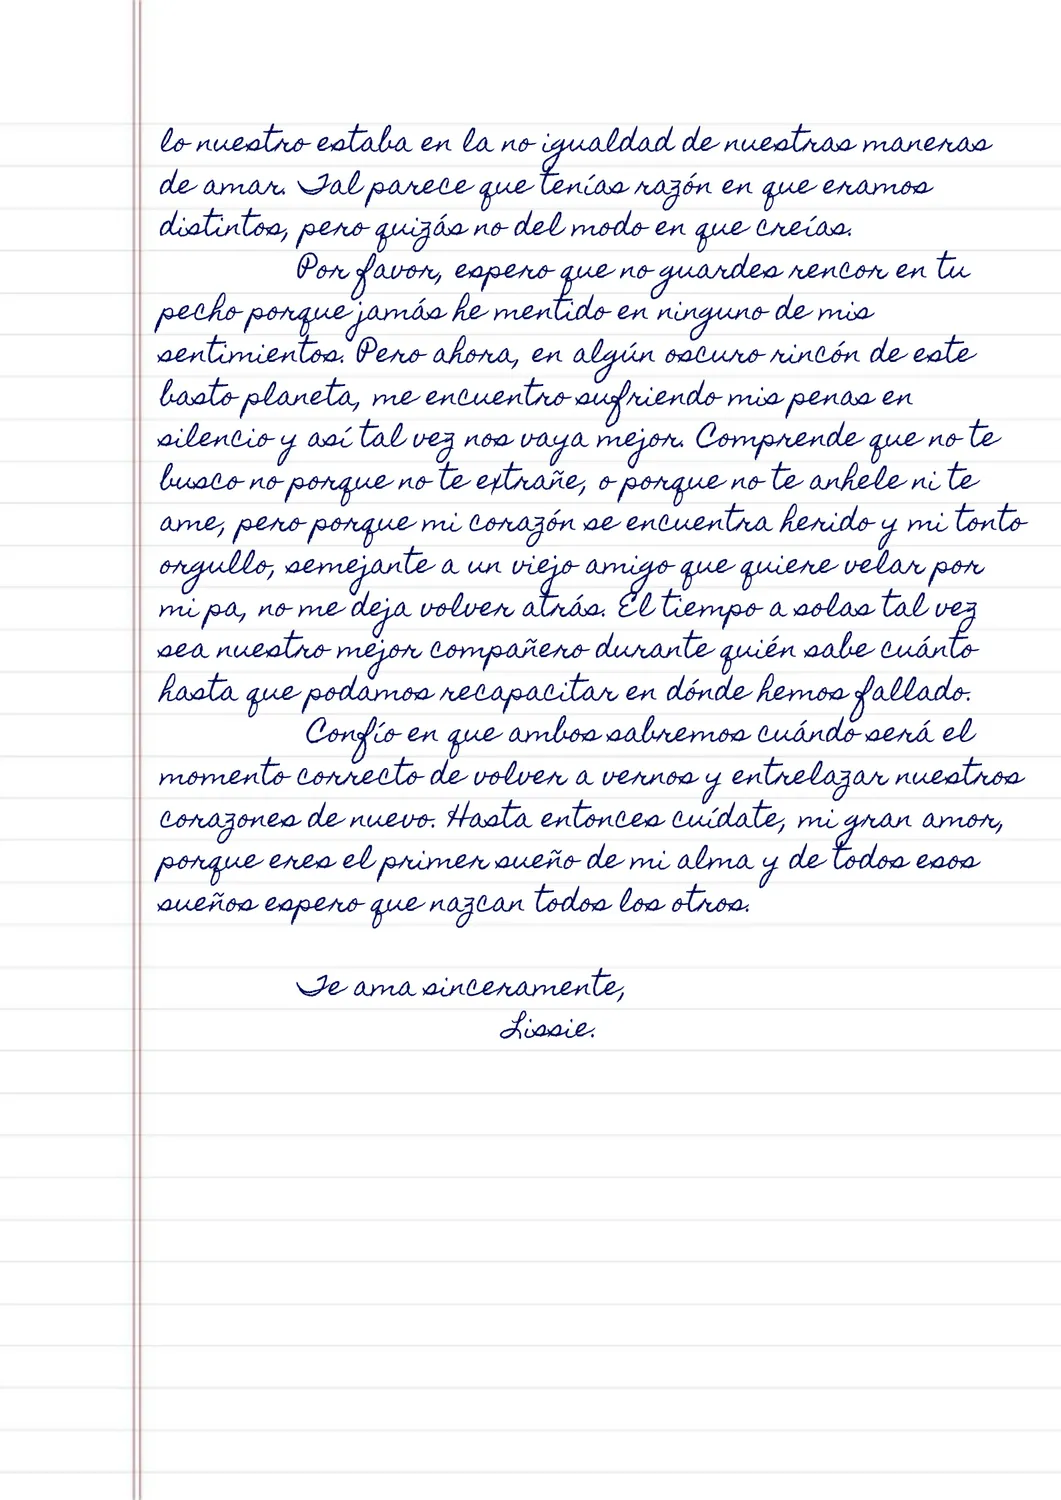 lo nuestro estaba en la no igualdad de nuestras maneras
de amar. Tal parece que tenías razón en que eramos
distintos, pero quizás no del modo en que creías.
Por favor, espero que no guardes rencor en tu
pecho porque jamás he mentido en ninguno de mis
sentimientos. Pero ahora, en algún oscuro rincón de este
basto planeta, me encuentro sufriendo mis penas en
silencio y así tal vez nos vaya mejor. Comprende que no te
busco no porque no te extrañe, o porque no te anhele ni te
ame, pero porque mi corazón se encuentra herido y mi tonto
orgullo, semejante a un viejo amigo que quiere velar por
mi pa, no me deja volver atrás. El tiempo a solas tal vez
sea nuestro mejor compañero durante quién sabe cuánto
hasta que podamos recapacitar en dónde hemos fallado.
Confío en que ambos sabremos cuándo será el
momento correcto de volver a vernos y entrelazar nuestros
corazones de nuevo. Hasta entonces cuídate, mi gran amor,
porque eres el primer sueño de mi alma y de todos esos
sueños espero que nazcan todos los otros.
Te ama sinceramente,
Lissie.